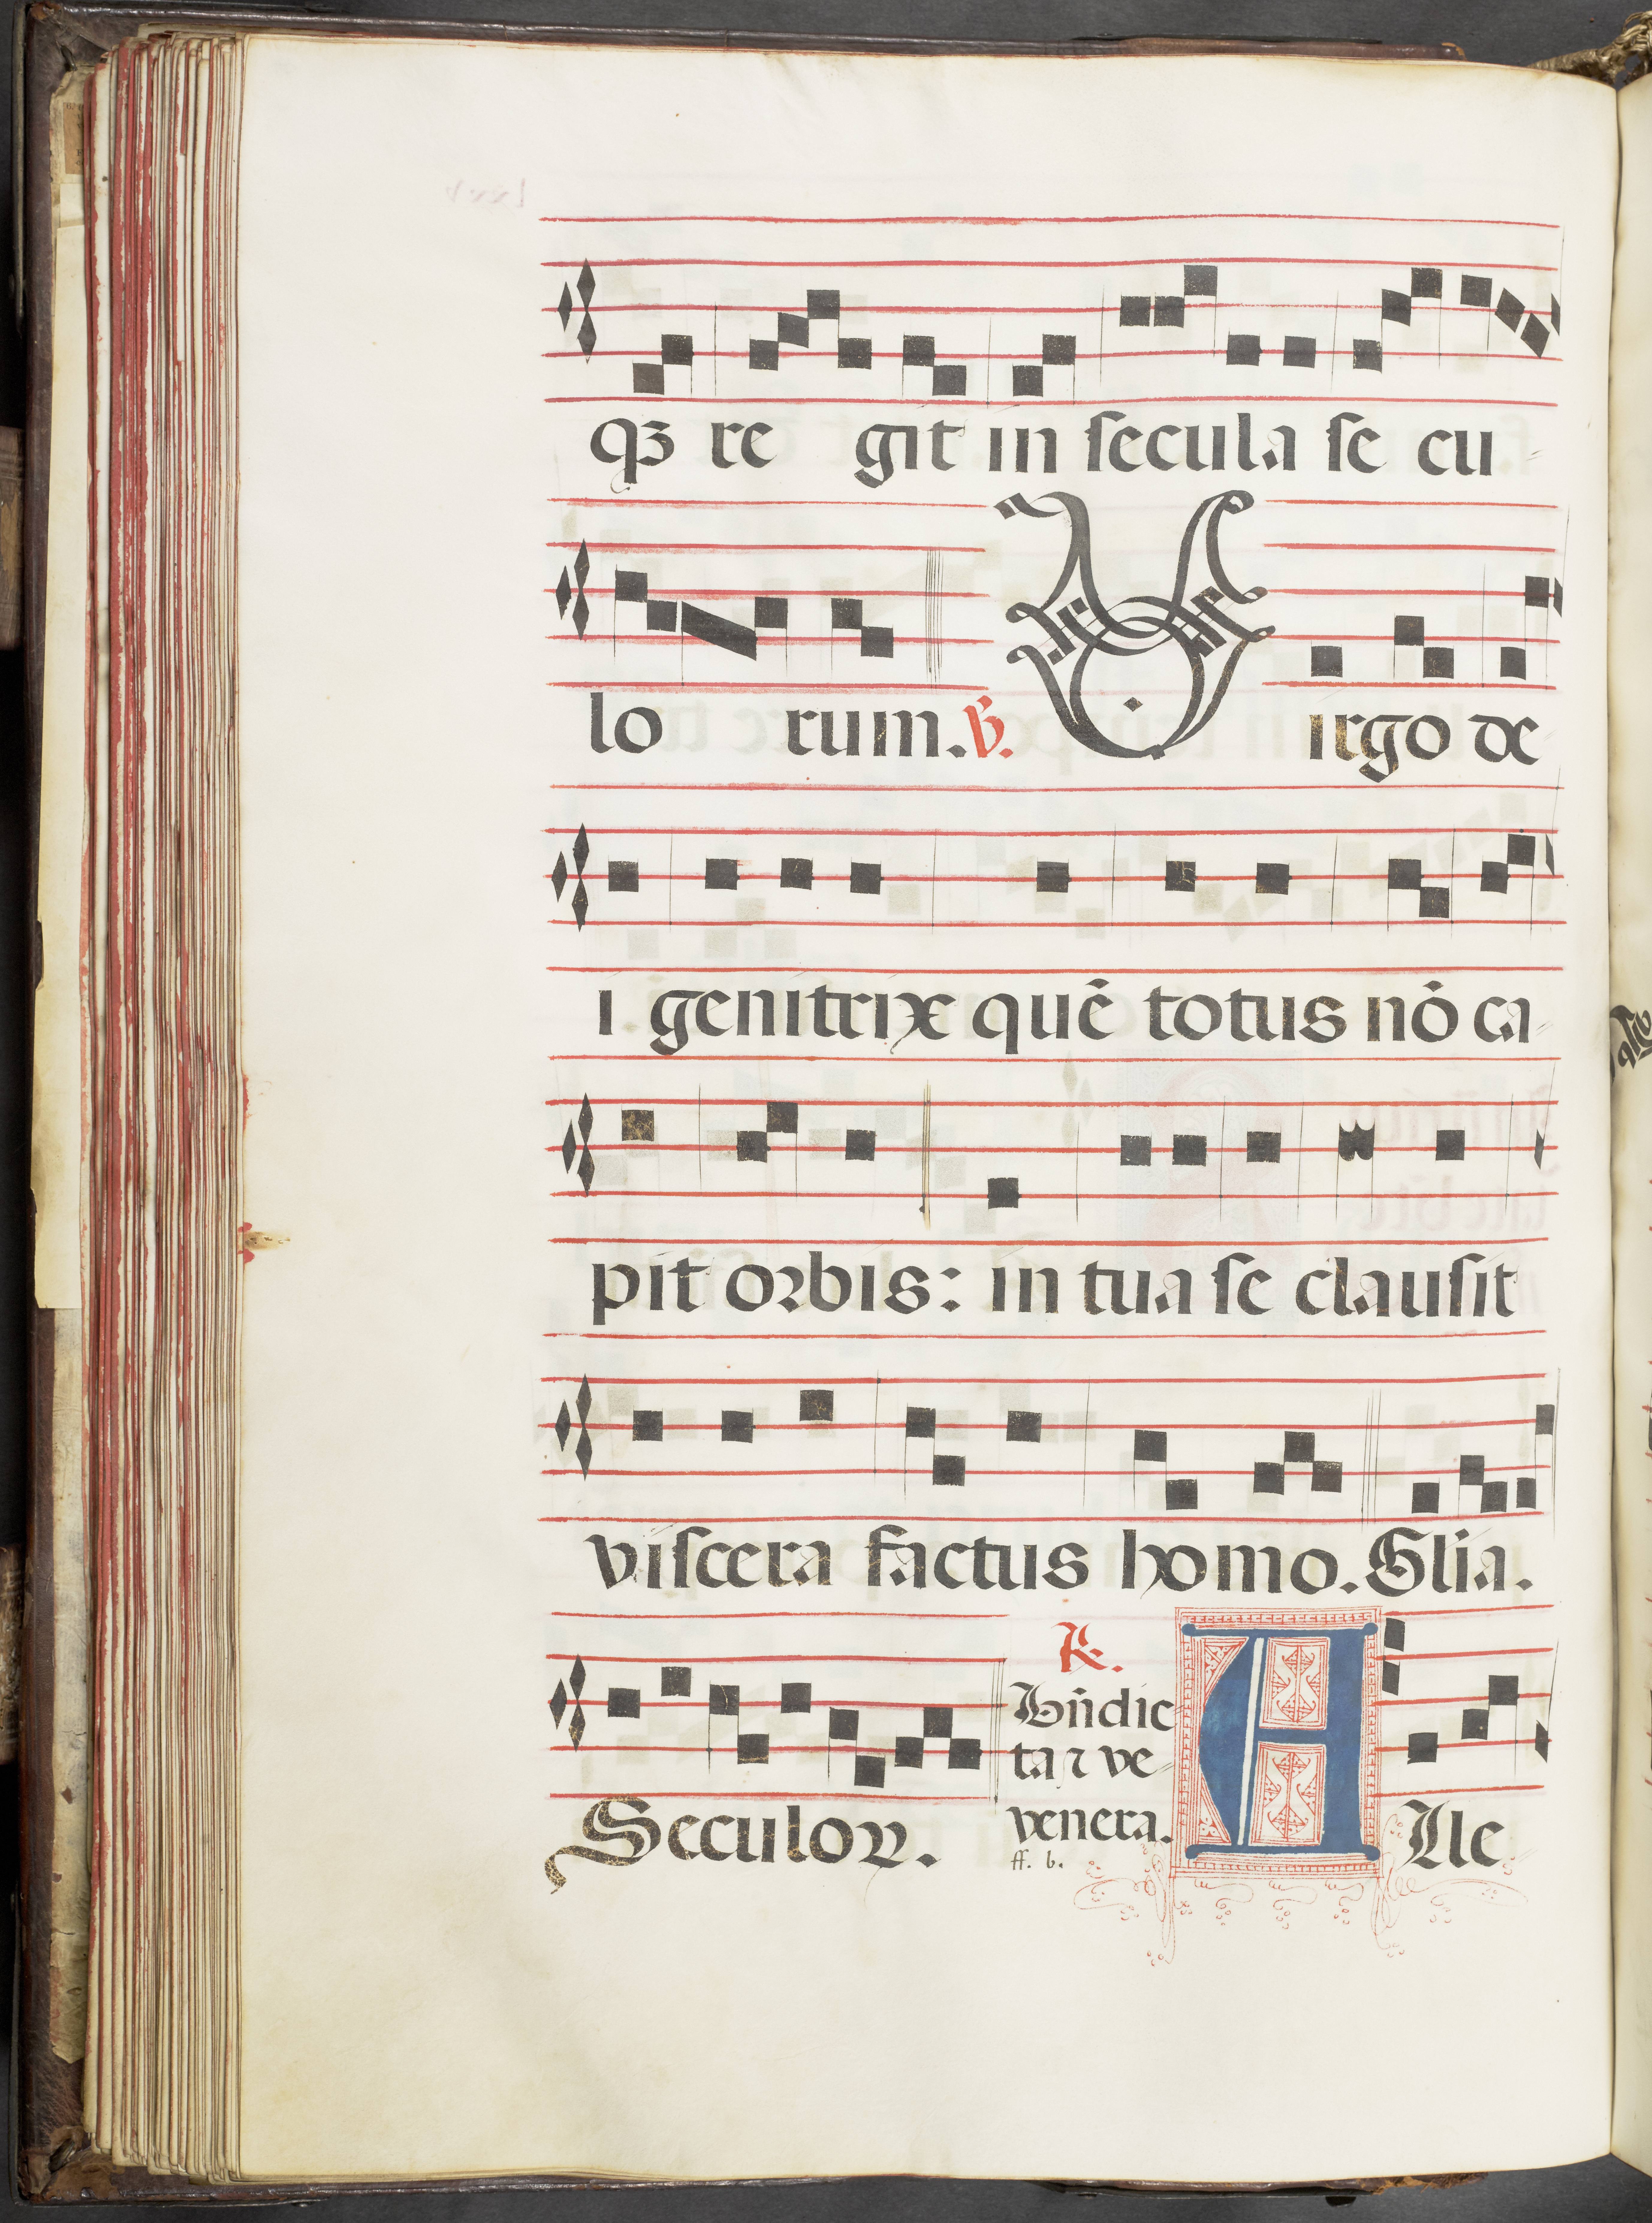 qꝫ re git in ſecula ſe cu
lo rum. ℣. Virgo de
i genitrix quē totus nō ca
pit orbis: in tua ſe clauſit
viſcera factus homo. Glia.
Seculoꝝ.
℟.
Bn̄dic
ta ⁊ ve
venera.
ff. b.
Alle